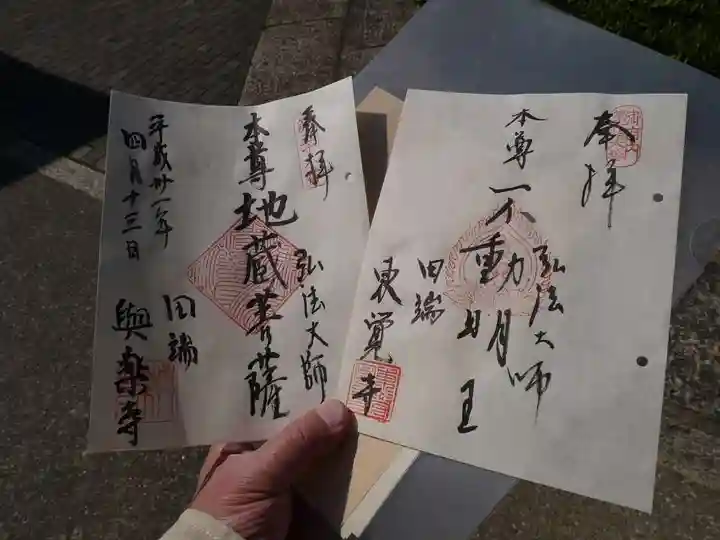 奉拝
弘法大師
本尊地蔵菩薩
平成廿一年
四月十三日
田端
與楽寺
奉拝
弘法大師
本尊不動明王
田端
東覚寺